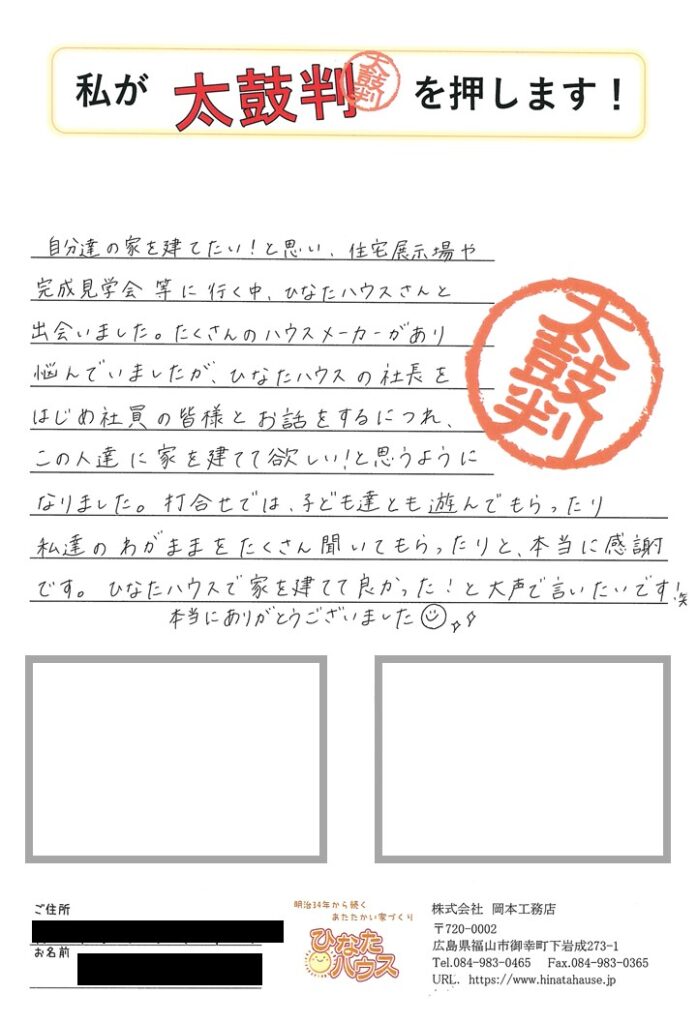 私が 太鼓判 太鼓判 を押します！
自分達の家を建てたい！と思い、住宅展示場や
完成見学会 等に行く中、ひなたハウスさんと
出会いました。たくさんのハウスメーカーがあり
悩んでいましたが、ひなたハウスの社長を
はじめ社員の皆様とお話をするにつれ、
この人達に家を建てて欲しい！と思うように
なりました。打合せでは、子ども達とも遊んでもらったり
私達のわがままをたくさん聞いてもらったりと、本当に感謝
です。ひなたハウスで家を建てて良かった！と大声で言いたいです！笑
本当にありがとうございました
太鼓判
ご住所
お名前
明治34年から続く
あたたかい家づくり
ひなた
ハウス
株式会社 岡本工務店
〒720-0002
広島県福山市御幸町下岩成273-1
Tel.084-983-0465 Fax.084-983-0365
URL. https://www.hinatahause.jp